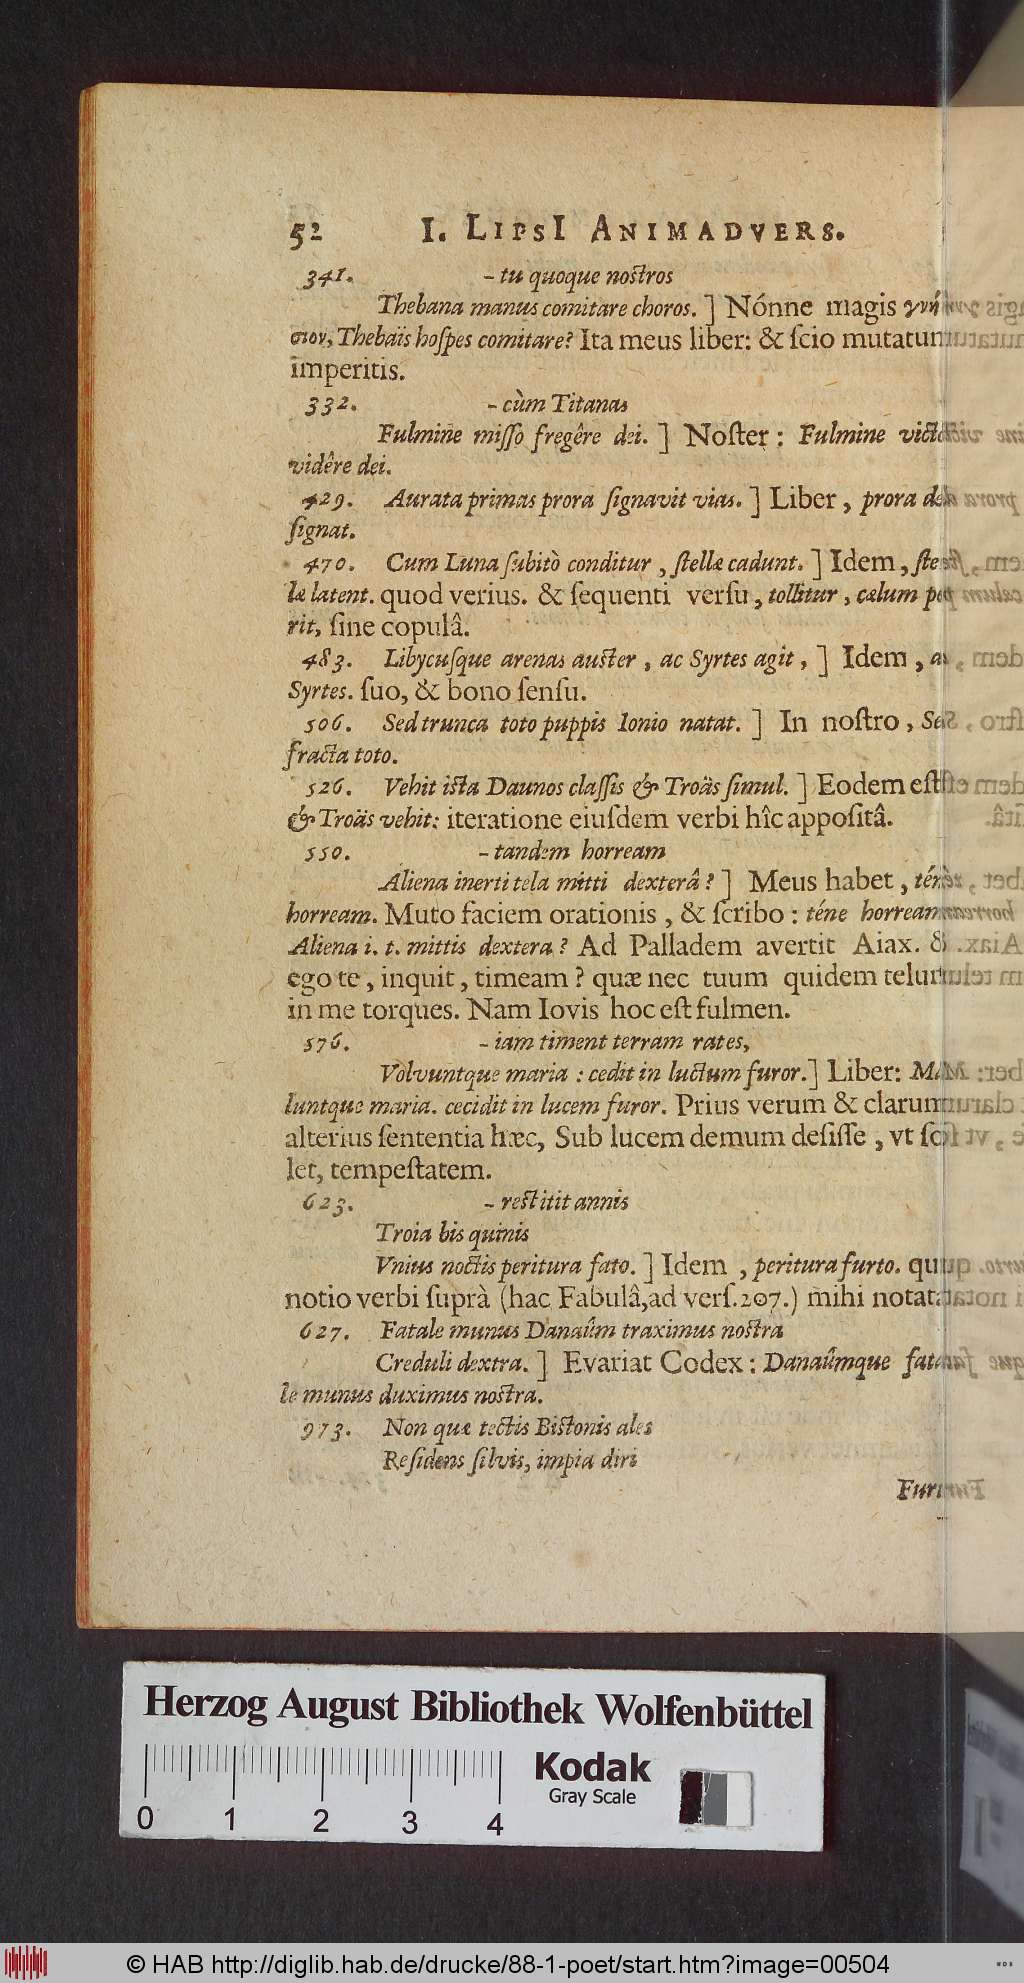 52 I. LIPSI ANIMADVERS.
341. - tu quoque nostros
Thebana manus comitare choros. ] Nónne magis γνή
σιον, Thebaïs hoſpes comitare? Ita meus liber: & ſcio mutatum
imperitis.
332. - cùm Titanas
Fulmine miſſo fregêre dei. ] Noſter: Fulmine
vidêre dei.
429. Aurata primas prora ſignavit vias. ] Liber, prora
ſignat.
470. Cum Luna ſubitò conditur, ſtellæ cadunt. ] Idem, ſtel
læ latent. quod verius. & ſequenti verſu, tollitur, cælum
rit, ſine copulâ.
483. Libycuſque arenas auſter, ac Syrtes agit, ] Idem,
Syrtes. ſuo, & bono ſenſu.
506. Sed trunca toto puppis Ionio natat. ] In noſtro, Sed
fracta toto.
526. Vehit iſta Daunos claſſis & Troäs ſimul. ] Eodem eſt
& Troäs vehit: iteratione eiuſdem verbi hîc appoſitâ.
550. - tandem horream
Aliena inerti tela mitti dexterâ? ] Meus habet,
horream. Muto faciem orationis, & ſcribo: téne horream
Aliena i. t. mittis dextera? Ad Palladem avertit Aiax. &
ego te, inquit, timeam? quæ nec tuum quidem telum
in me torques. Nam Iovis hoc eſt fulmen.
576. - iam timent terram rates,
Volvuntque maria: cedit in luctum furor. ] Liber: Ma
luntque maria. cecidit in lucem furor. Prius verum & clarum
alterius ſententia hæc, Sub lucem demum deſiſſe, vt ſo
let, tempeſtatem.
623. - reſtitit annis
Troia bis quinis
Vnius noctis peritura fato. ] Idem, peritura furto.
notio verbi ſuprà (hac Fabulâ, ad verſ. 207.) mihi notata
627. Fatale munus Danaûm traximus noſtra
Creduli dextra. ] Evariat Codex: Danaûmque fata
le munus duximus noſtra.
973. Non quæ tectis Biſtonis ales
Reſidens ſilvis, impia diri
Herzog August Bibliothek Wolfenbüttel
0 1 2 3 4
Kodak
Gray Scale
© HAB http://diglib.hab.de/drucke/88-1-poet/start.htm?image=00504